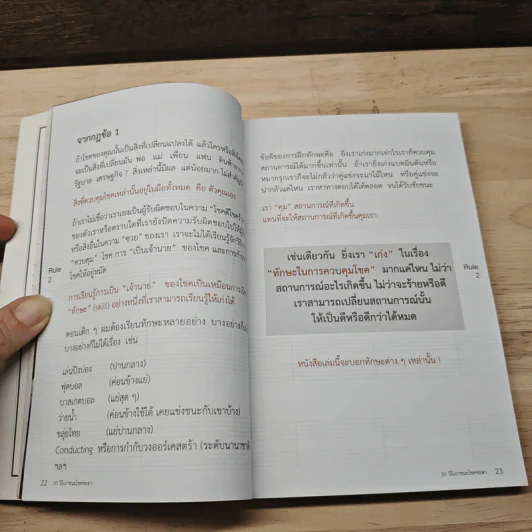 จากกฎข้อ 1
ถ้าโชคของคุณนั้นเป็นสิ่งที่เปลี่ยนแปลงได้ แล้วใครหรือสิ่งใด
จะเป็นสิ่งที่เปลี่ยนมัน พ่อ แม่ เพื่อน แฟน ดินฟ้า
รัฐบาล เศรษฐกิจ ? สิ่งเหล่านี้มีผล แต่น้อยมาก ไม่สำคัญ
สิ่งที่ควบคุมโชคเหล่านั้นอยู่ในมือทั้งหมด คือ ตัวคุณเอง
ถ้าเราไม่ถือว่าเราเองเป็นผู้รับผิดชอบในความ "โชคดีโชคร้าย"
ของตัวเราหรือตราบใดที่เรายังปัดความรับผิดชอบไปให้ผู้
หรือสิ่งอื่นในความ "ซวย" ของเรา เราจะไม่ได้เรียนรู้จักวิธี
"ควบคุม" โชค การ "เป็นเจ้านาย" ของโชค และการทำ
โชคให้อยู่หมัด
Rule
2
การเรียนรู้การเป็น "เจ้านาย" ของโชคเป็นเหมือนการ
"ทักษะ" (skill) อย่างหนึ่งที่เราสามารถเรียนรู้ให้เก่งได้
ตอนเด็ก ๆ ผมต้องเรียนทักษะหลายอย่าง บางอย่างก็
บางอย่างก็ไม่ได้เรื่อง เช่น
เล่นปิงปอง (ปานกลาง)
ฟุตบอล (ค่อนข้างแย่)
บาสเกตบอล (แย่สุด ๆ)
ว่ายน้ำ (ค่อนข้างใช้ได้ เคยแข่งชนะกับเขาบ้าง)
ขลุ่ยไทย (แย่ปานกลาง)
Conducting หรือการกำกับวงออร์เคสตร้า (ระดับนานาชาติ
ฯลฯ
22 30 วิธีเอาชนะโชคชะตา
ข้อดีของการฝึกทักษะคือ ยิ่งเราเก่งมากเท่าไรเราก็ควบคุม
สถานการณ์ได้มากขึ้นเท่านั้น ถ้าเรายิ่งเล่นแบดมินตันหรือ
หมากรุกเราก็จะไม่กลัวว่าคู่แข่งจะมาไม้ไหน หรือคู่แข่งจะ
น่ากลัวแค่ไหน เราหาทางตอบโต้ได้ตลอด จนได้รับชัยชนะ
เรา "คุม" สถานการณ์ที่เกิดขึ้น
แทนที่จะให้สถานการณ์ที่เกิดขึ้นคุมเรา
เช่นเดียวกัน ยิ่งเรา "เก่ง" ในเรื่อง
"ทักษะในการควบคุมโชค" มากแค่ไหน ไม่ว่า
สถานการณ์อะไรเกิดขึ้น ไม่ว่าจะร้ายหรือดี
เราสามารถเปลี่ยนสถานการณ์นั้น
ให้เป็นดีหรือดีกว่าได้หมด
Rule
2
หนังสือเล่มนี้จะบอกทักษะต่าง ๆ เหล่านั้น !
30 วิธีเอาชนะโชคชะตา 23